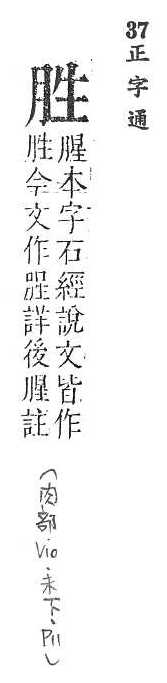 37正字通
胜
腥本字石經說文皆作
胜今文作腥詳後腥註
(肉部 Vio.未下.P11)